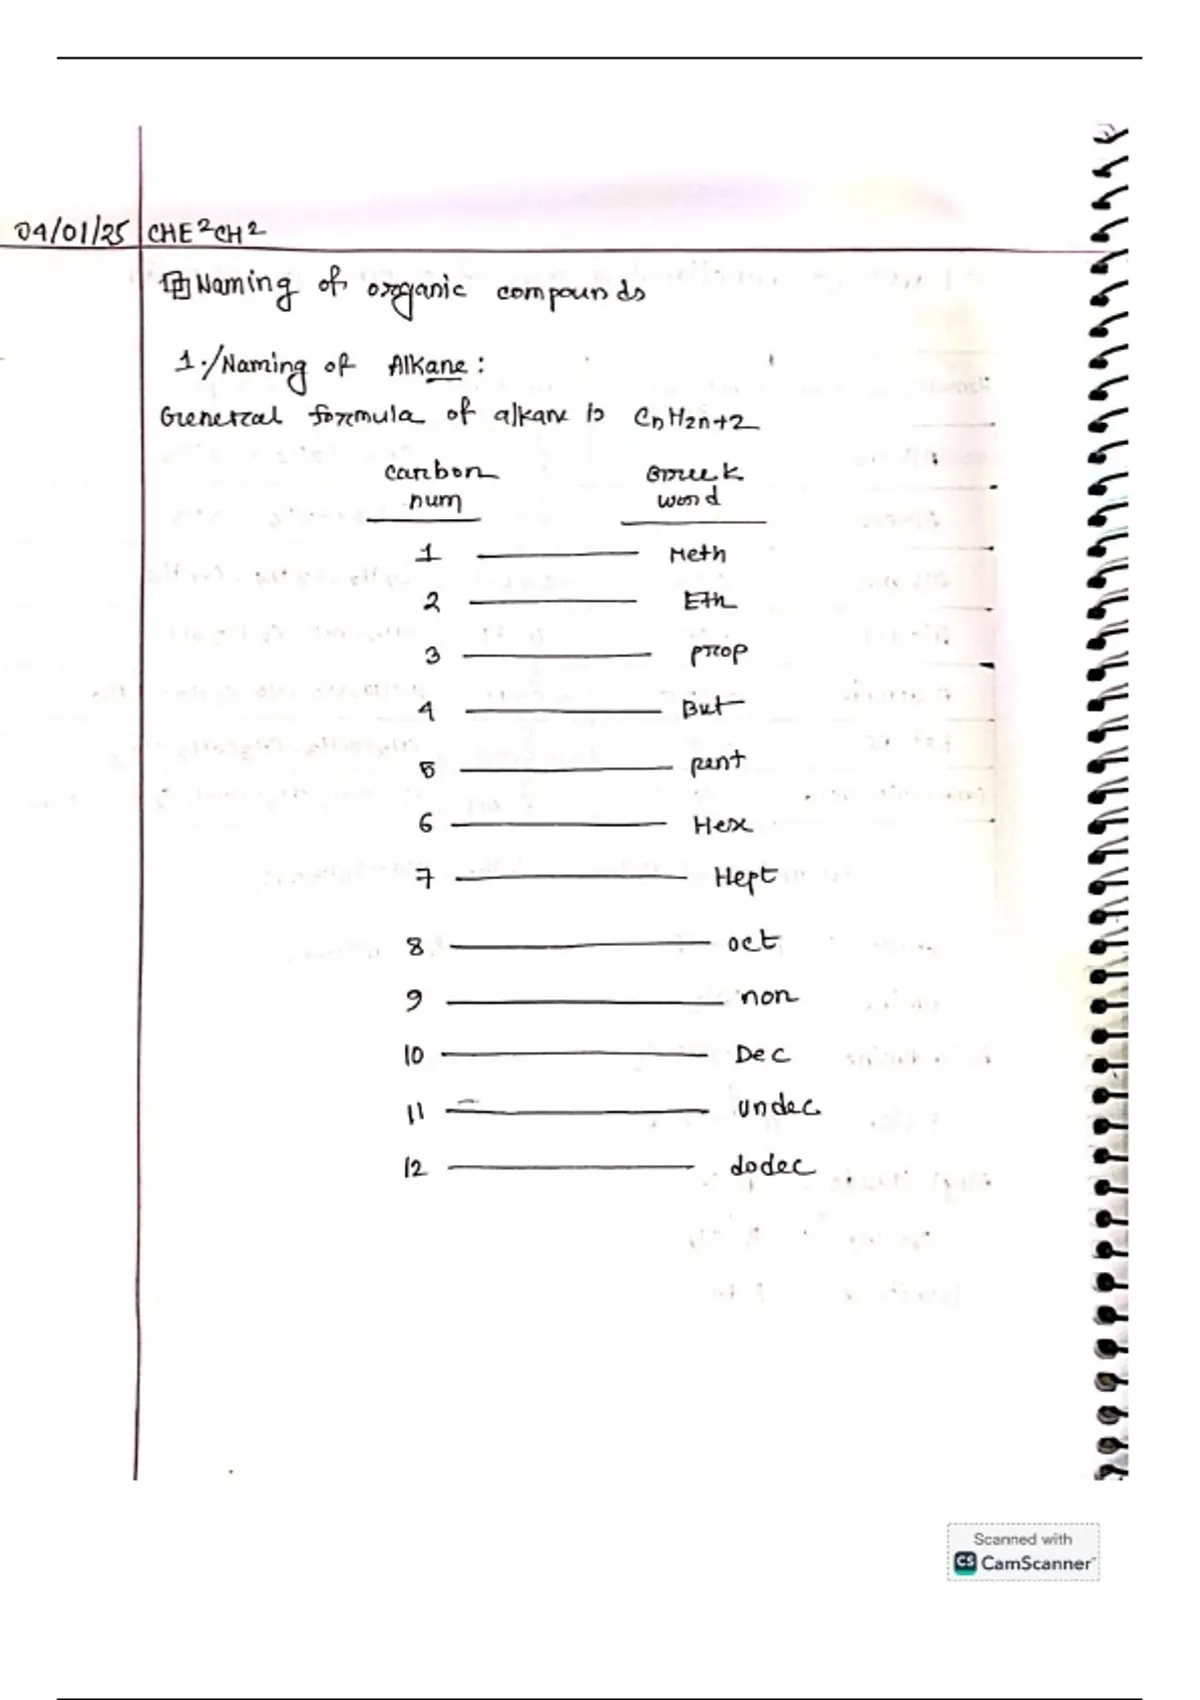 04/01/25 CHE²CH²
Naming of organic compounds
1./Naming of Alkane:
General formula of alkane is CnH2n+2
carbon num Greek word
1 Meth
2 Eth
3 prop
4 But
5 pent
6 Hex
7 Hept
8 oct
9 non
10 Dec
11 undec
12 dodec
Scanned with
CS CamScanner